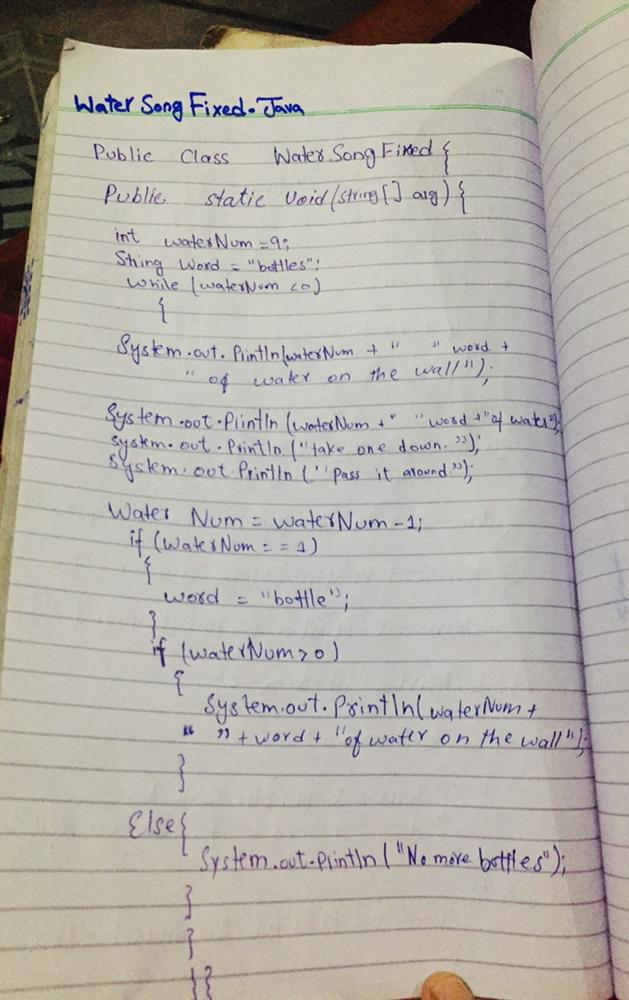 Water Song Fixed.Java
Public Class Water Song Fixed {
Public static void (string[] arg) {
int waterNum = 9;
String Word = "bottles";
while (waterNum <0)
{
System.out.Println(waterNum + " " word +
" of water on the wall");
System.out.Println (waterNum + " " word + "of water");
System.out.Println ("take one down.");
System.out Println ("Pass it around.");
Water Num = waterNum -1;
if (WaterNum = = 1)
{
word = "bottle";
}
if (waterNum > 0)
{
System.out.Println(waterNum +
" " + word + "of water on the wall");
}
Else{
System.out.Println ("No more bottles");
}
}
}}